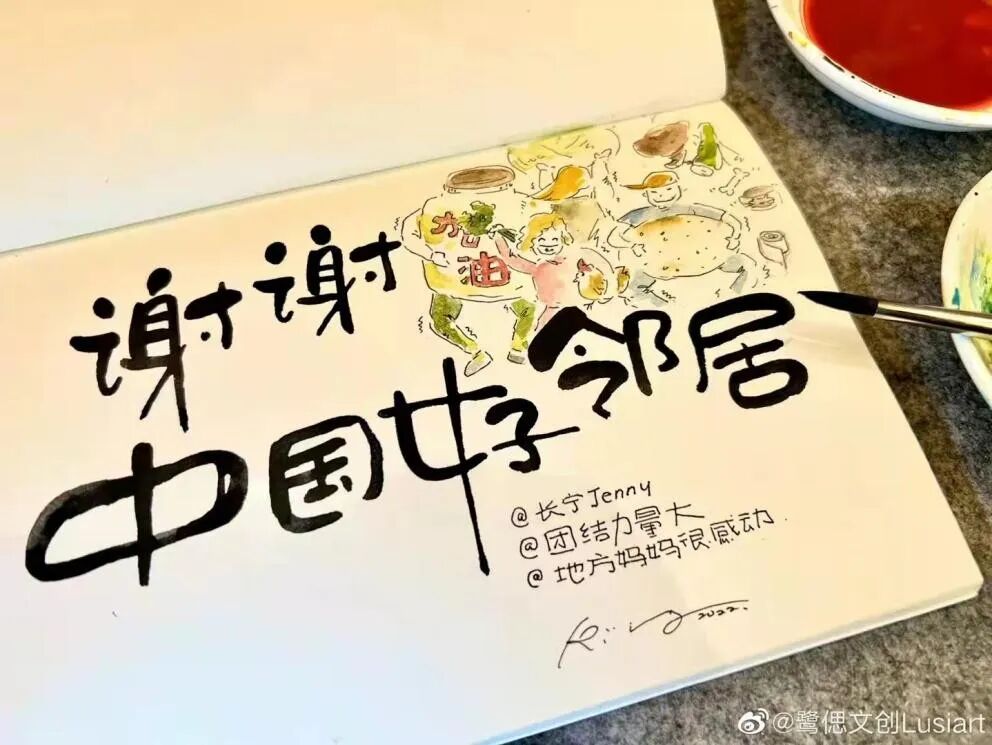 加油
谢谢
中国好邻居
@长宁Jenny
@团结力量大
@地方妈妈很感动.
2022.
@鹭偲文创Lusiart